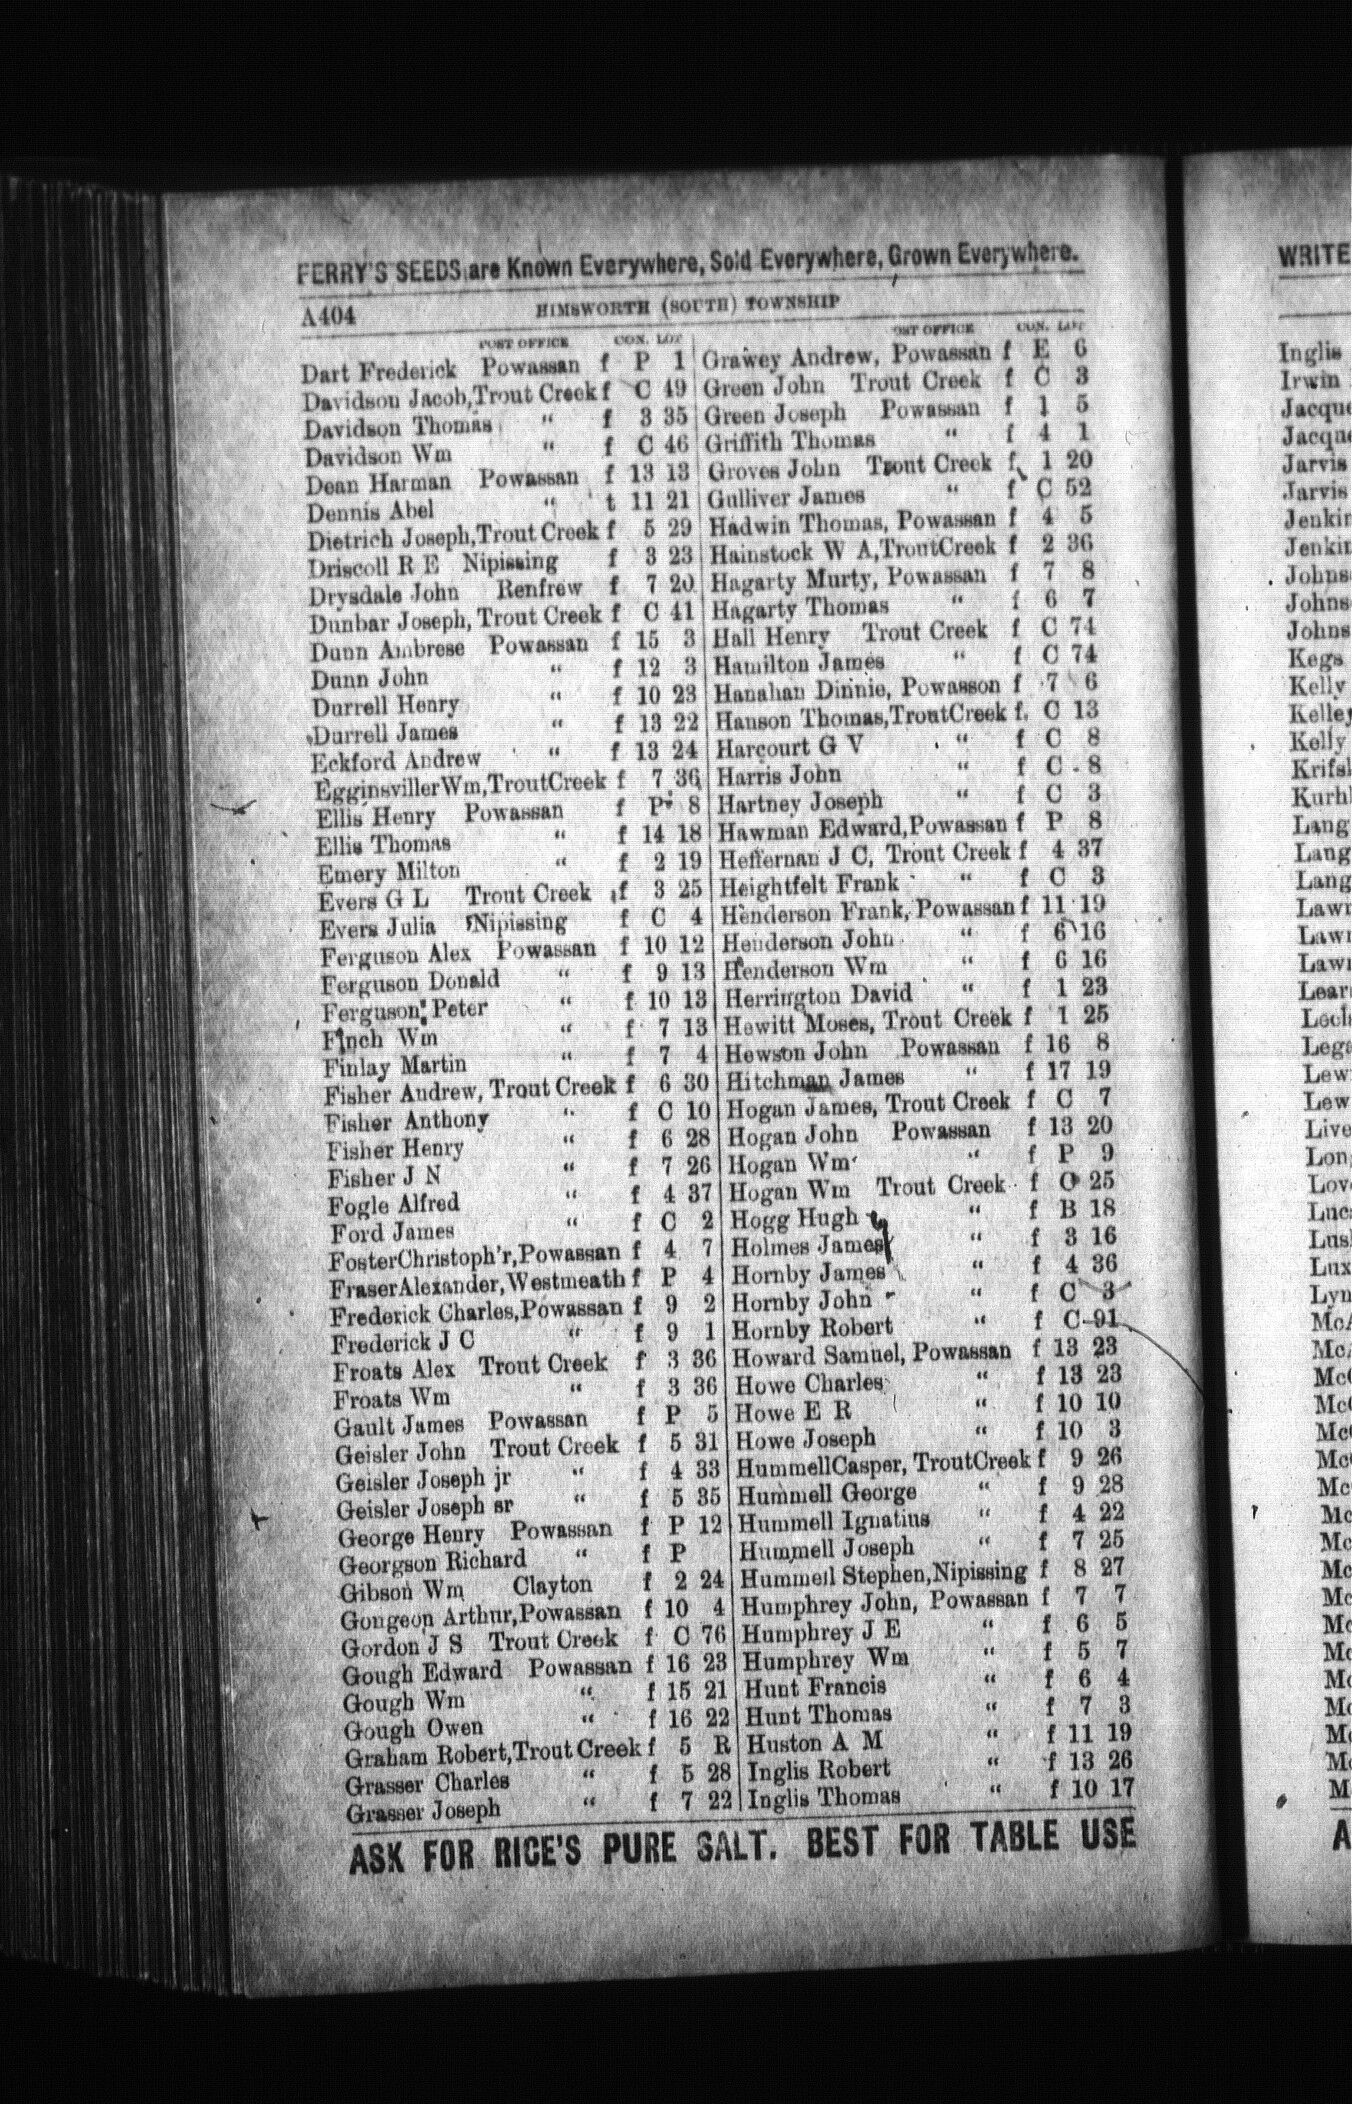 FERRY'S SEEDS are Known Everywhere, Sold Everywhere, Grown Everywhere.
A404 HIMSWORTH (SOUTH) TOWNSHIP
POST OFFICE CON. LOT
Dart Frederick Powassan f P 1
Davidson Jacob, Trout Creek f C 49
Davidson Thomas “ f 3 35
Davidson Wm “ f C 46
Dean Harman Powassan f 13 13
Dennis Abel “ t 11 21
Dietrich Joseph, Trout Creek f 5 29
Driscoll R E Nipissing f 3 23
Drysdale John Renfrew f 7 20
Dunbar Joseph, Trout Creek f C 41
Dunn Ambrese Powassan f 15 3
Dunn John “ f 12 3
Durrell Henry “ f 10 23
Durrell James “ f 13 22
Eckford Andrew “ f 13 24
EgginsvillerWm,TroutCreek f 7 36
Ellis Henry Powassan f P 8
Ellis Thomas “ f 14 18
Emery Milton “ f 2 19
Evers G L Trout Creek f 3 25
Evers Julia Nipissing f C 4
Ferguson Alex Powassan f 10 12
Ferguson Donald “ f 9 13
Ferguson Peter “ f 10 13
Finch Wm “ f 7 13
Finlay Martin “ f 7 4
Fisher Andrew, Trout Creek f 6 30
Fisher Anthony “ f C 10
Fisher Henry “ f 6 28
Fisher J N “ f 7 26
Fogle Alfred “ f 4 37
Ford James “ f C 2
FosterChristoph'r,Powassan f 4 7
FraserAlexander,Westmeath f P 4
Frederick Charles,Powassan f 9 2
Frederick J C “ f 9 1
Froats Alex Trout Creek f 3 36
Froats Wm “ f 3 36
Gault James Powassan f P 5
Geisler John Trout Creek f 5 31
Geisler Joseph jr “ f 4 33
Geisler Joseph sr “ f 5 35
George Henry Powassan f P 12
Georgson Richard “ f P
Gibson Wm Clayton f 2 24
Gougeon Arthur,Powassan f 10 4
Gordon J S Trout Creek f C 76
Gough Edward Powassan f 16 23
Gough Wm “ f 15 21
Gough Owen “ f 16 22
Graham Robert,Trout Creek f 5 R
Grasser Charles “ f 5 28
Grasser Joseph “ f 7 22
OST OFFICE CON. LOT
Grawey Andrew, Powassan f E 6
Green John Trout Creek f C 3
Green Joseph Powassan f 1 5
Griffith Thomas “ f 4 1
Groves John Trout Creek f 1 20
Gulliver James “ f C 52
Hadwin Thomas, Powassan f 4 5
Hainstock W A,TroutCreek f 2 36
Hagarty Murty, Powassan f 7 8
Hagarty Thomas “ f 6 7
Hall Henry Trout Creek f C 74
Hamilton James “ f C 74
Hanahan Dinnie, Powasson f 7 6
Hanson Thomas,TroutCreek f C 13
Harcourt G V “ f C 8
Harris John “ f C 8
Hartney Joseph “ f C 3
Hawman Edward,Powassan f P 8
Heffernan J C, Trout Creek f 4 37
Heightfelt Frank “ f C 3
Henderson Frank, Powassan f 11 19
Henderson John “ f 6 16
Henderson Wm “ f 6 16
Herrington David “ f 1 23
Hewitt Moses, Trout Creek f 1 25
Hewson John Powassan f 16 8
Hitchman James “ f 17 19
Hogan James, Trout Creek f C 7
Hogan John Powassan f 13 20
Hogan Wm “ f P 9
Hogan Wm Trout Creek f C 25
Hogg Hugh “ f B 18
Holmes James “ f 3 16
Hornby James “ f 4 36
Hornby John “ f C 3
Hornby Robert “ f C 91
Howard Samuel, Powassan f 13 23
Howe Charles “ f 13 23
Howe E R “ f 10 10
Howe Joseph “ f 10 3
HummellCasper, TroutCreek f 9 26
Hummell George “ f 9 28
Hummell Ignatius “ f 4 22
Hummell Joseph “ f 7 25
Hummell Stephen,Nipissing f 8 27
Humphrey John, Powassan f 7 7
Humphrey J E “ f 6 5
Humphrey Wm “ f 5 7
Hunt Francis “ f 6 4
Hunt Thomas “ f 7 3
Huston A M “ f 11 19
Inglis Robert “ f 13 26
Inglis Thomas “ f 10 17
ASK FOR RICE'S PURE SALT. BEST FOR TABLE USE
WRITE
Inglis
Irwin
Jacque
Jacque
Jarvis
Jarvis
Jenkin
Jenkin
Johns
Johns
Johns
Kegs
Kelly
Kelley
Kelly
Krifs
Kurh
Lang
Lang
Lang
Lawr
Lawr
Lawr
Lear
Lecl
Lega
Lew
Lew
Live
Lon
Lov
Luc
Lus
Lux
Lyn